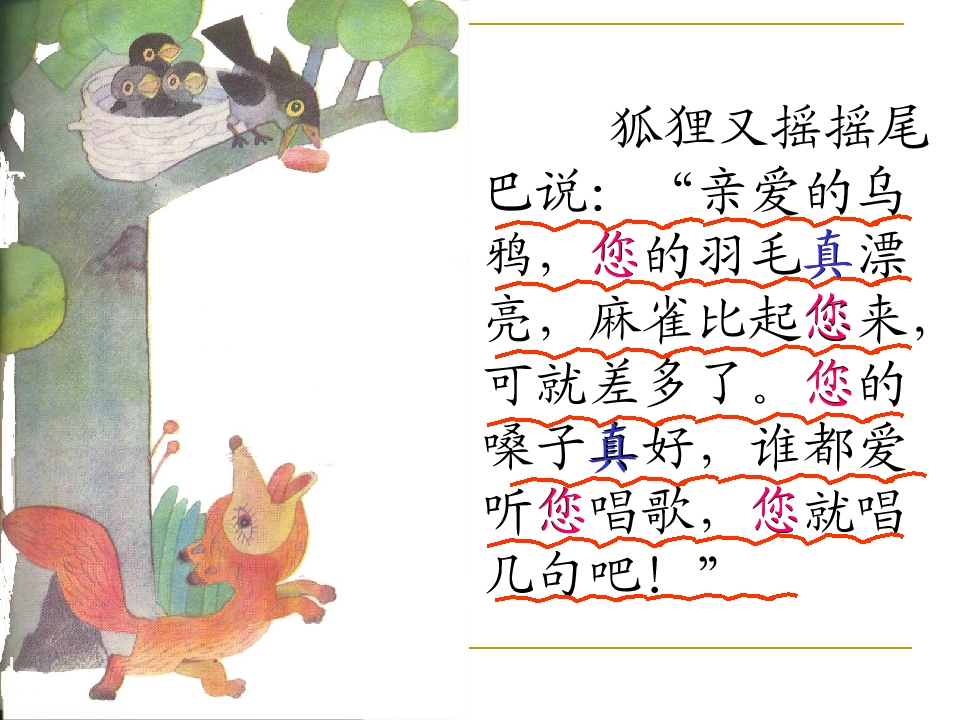 狐狸又摇摇尾
巴说：“亲爱的乌
鸦，您的羽毛真漂
亮，麻雀比起您来，
可就差多了。您的
嗓子真好，谁都爱
听您唱歌，您就唱
几句吧！”